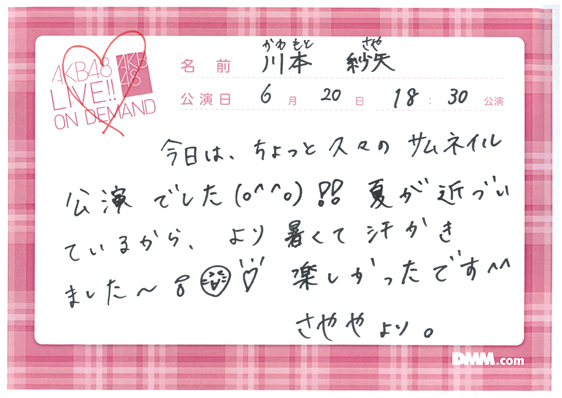 AKB48
LIVE!!
ON DEMAND
AKB
48
かわ もと さや
名前 川本 紗矢
公演日 6月 20日 18:30 公演
今日は、ちょっと久々の サムネイル
公演 でした(o^^o)!! 夏が近づい
ているから、より 暑くて 汗かき
ました〜 楽しかったです^^
さややより。
DMM.com